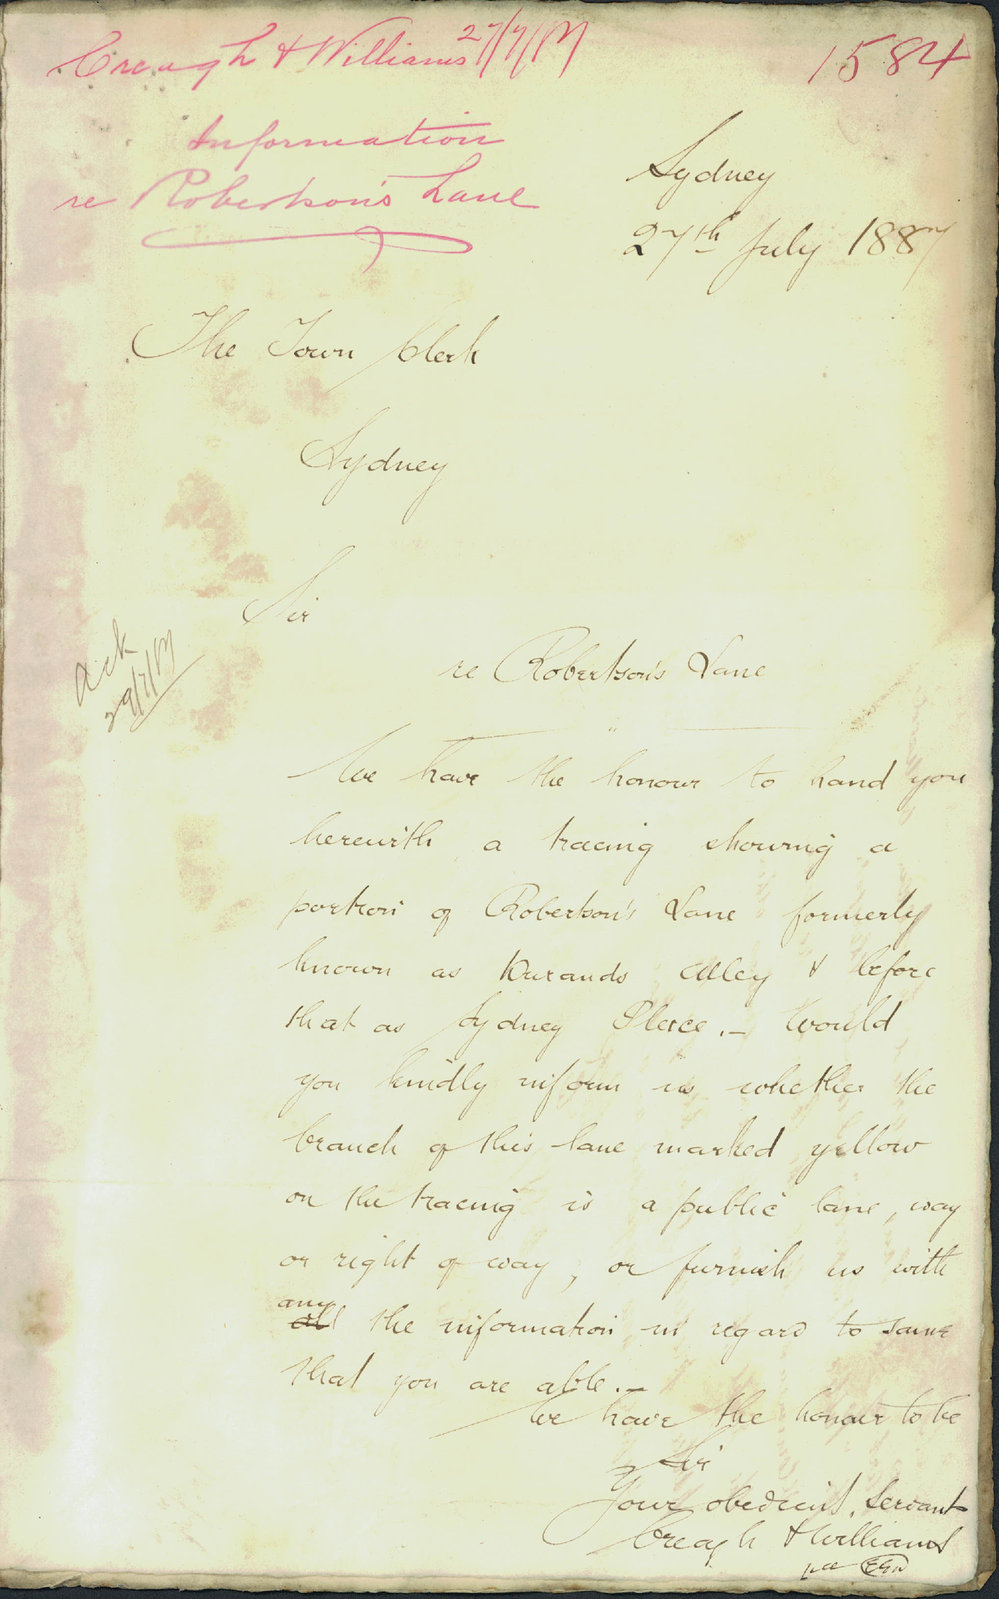 Creagh & Williams 27/7/87
1584
Information
re Robertson's Lane
Sydney
27th July 1887
The Town Clerk
Sydney
Sir
Ack
29/7/87
re Robertson's Lane
We have the honour to hand you
herewith a tracing showing a
portion of Robertson's Lane formerly
known as Durands Alley & before
that as Sydney Place. - Would
you kindly inform us whether the
branch of this lane marked yellow
on the tracing is a public lane, way
or right of way, or furnish us with
any
all the information in regard to same
that you are able. -
We have the honour to be
Sir
Your obedient Servants
Creagh & Williams
per